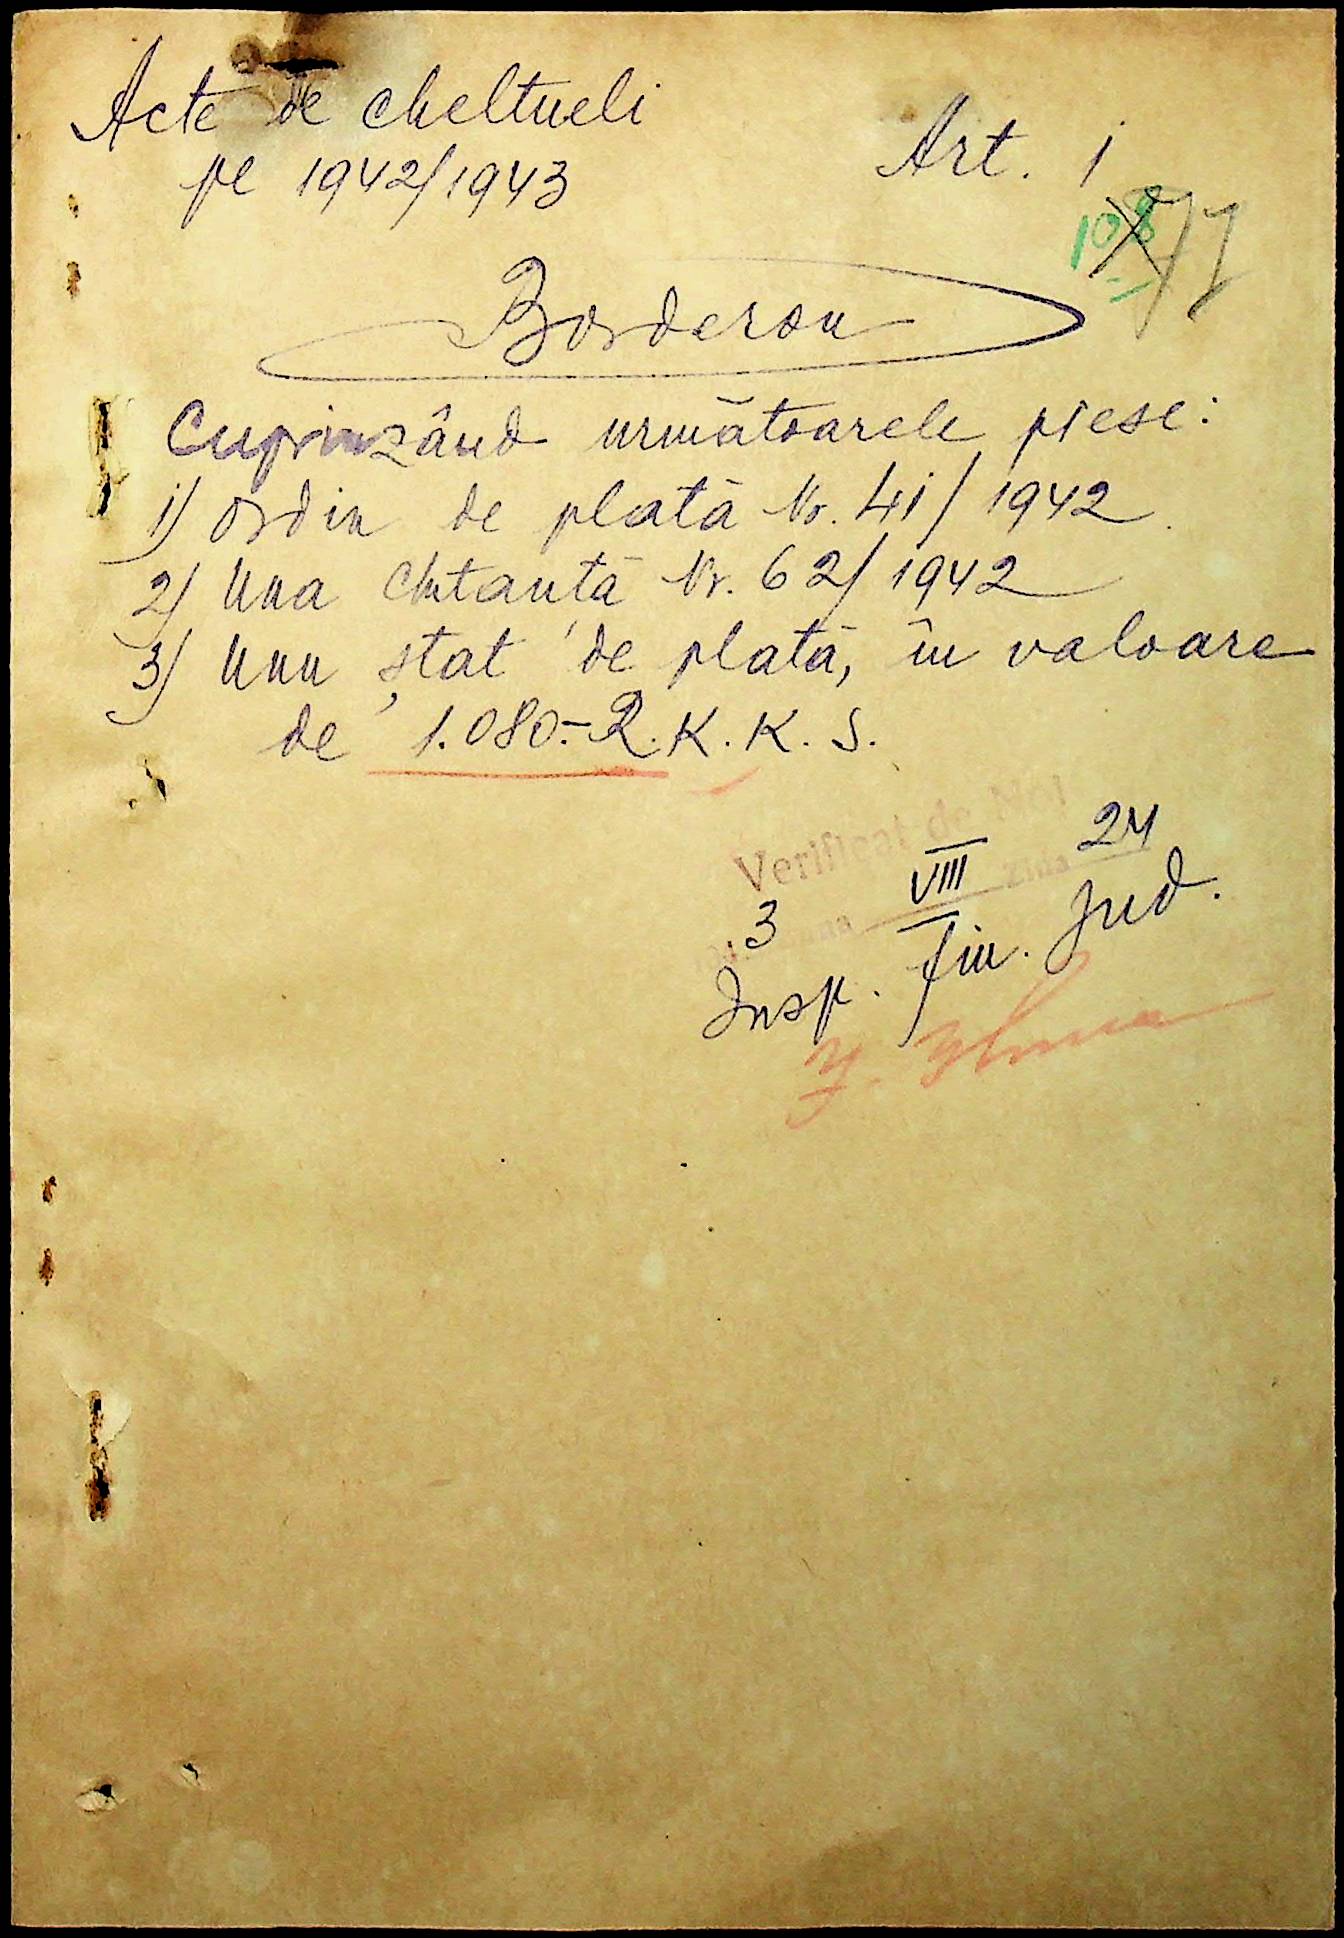 Acte de cheltueli
pe 1942/1943
Art. 1
108 77
Borderou
Cuprinzând următoarele piese:
1) Ordin de plată Nr. 41/1942
2) Una chtanță Nr. 62/1942
3) Unu ștat de plată, în valoare
de 1.080.- R.K.K.S.
Verificat de Noi
3 VIII Ziua 24
Insp. fin. Jud.